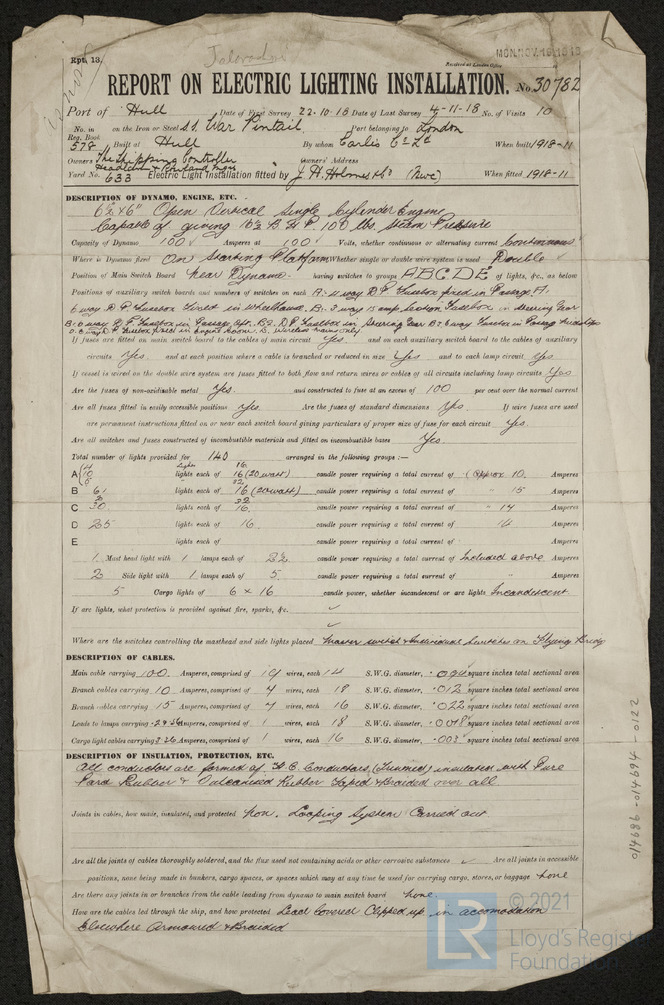 Rpt. 13.
Received at London Office
MON. NOV. 18 1918
REPORT ON ELECTRIC LIGHTING INSTALLATION. No. 30782
Port of Hull Date of First Survey 22-10-18 Date of Last Survey 4-11-18 No. of Visits 10
No. in Reg. Book 578 on the Iron or Steel S.S. War Pintail Port belonging to London
Built at Hull By whom Earles Co Ld When built 1918-11
Owners The Shipping Controller Owners' Address
Yard No. 633 Electric Light Installation fitted by J. H. Holmes & Co (Nwc) When fitted 1918-11
DESCRIPTION OF DYNAMO, ENGINE, ETC.
6½ x 6" Open Vertical Single Cylinder Engine
Capable of giving 16½ B.H.P. 100 lbs. Steam Pressure
Capacity of Dynamo 100 Amperes at 100 Volts, whether continuous or alternating current Continuous
Where is Dynamo fixed On Starting Platform Whether single or double wire system is used Double
Position of Main Switch Board near Dynamo having switches to groups A B C D E of lights, &c., as below
Positions of auxiliary switch boards and numbers of switches on each A: 4 way D.P. Fusebox fixed in Passage, A1
6 way D.P. Fusebox fixed in wheelhouse, B1 3 way 15 amp Section Fusebox in Steering Gear
B: 6 way D.P. Fusebox in Passage Aft. B2, D.P. Fusebox in Steering Gear B3 6 way Fusebox in Passage Amidships
fixed in Engine Room E. Wireless room only
If fuses are fitted on main switch board to the cables of main circuit Yes and on each auxiliary switch board to the cables of auxiliary
circuits Yes and at each position where a cable is branched or reduced in size Yes and to each lamp circuit Yes
If vessel is wired on the double wire system are fuses fitted to both flow and return wires or cables of all circuits including lamp circuits Yes
Are the fuses of non-oxidizable metal Yes. and constructed to fuse at an excess of 100 per cent over the normal current
Are all fuses fitted in easily accessible positions Yes. Are the fuses of standard dimensions Yes. If wire fuses are used
are permanent instructions fitted on or near each switch board giving particulars of proper size of fuse for each circuit Yes.
Are all switches and fuses constructed of incombustible materials and fitted on incombustible bases Yes.
Total number of lights provided for 140 arranged in the following groups :—
A 10 lights each of 16 (20 watt) candle power requiring a total current of (Approx 10. Amperes
B 61 lights each of 16 (20 watt) candle power requiring a total current of " 15 Amperes
C 30 lights each of 16. candle power requiring a total current of " 14 Amperes
D 25 lights each of 16. candle power requiring a total current of Amperes
E lights each of candle power requiring a total current of Amperes
1 Mast head light with 1 lamps each of 32 candle power requiring a total current of Included above Amperes
2 Side light with 1 lamps each of 5 candle power requiring a total current of " Amperes
5 Cargo lights of 6 x 16 candle power, whether incandescent or arc lights Incandescent
If arc lights, what protection is provided against fire, sparks, &c.
Where are the switches controlling the masthead and side lights placed Master switch & Individual Switches on Flying Bridge
DESCRIPTION OF CABLES.
Main cable carrying 100 Amperes, comprised of 19 wires, each 14 S.W.G. diameter, .094 square inches total sectional area
Branch cables carrying 10 Amperes, comprised of 7 wires, each 18 S.W.G. diameter, .012 square inches total sectional area
Branch cables carrying 15 Amperes, comprised of 7 wires, each 16 S.W.G. diameter, .022 square inches total sectional area
Leads to lamps carrying Amperes, comprised of 1 wires, each 18 S.W.G. diameter, .0018 square inches total sectional area
Cargo light cables carrying 3.36 Amperes, comprised of 1 wires, each 16 S.W.G. diameter, .003 square inches total sectional area
DESCRIPTION OF INSULATION, PROTECTION, ETC.
All conductors are formed of H.C. Conductors, (Tinned) insulated with Pure
Para Rubber & Vulcanised Rubber Taped & Braided over all
Joints in cables, how made, insulated, and protected Non. Looping System Carried out
Are all the joints of cables thoroughly soldered, and the flux used not containing acids or other corrosive substances Are all joints in accessible
positions, none being made in bunkers, cargo spaces, or spaces which may at any time be used for carrying cargo, stores, or baggage none
Are there any joints in or branches from the cable leading from dynamo to main switch board none.
How are the cables led through the ship, and how protected Lead Covered Clipped up in accomodation
Elsewhere Armoured & Braided
014686-014694-0122
LR
© 2021
Lloyd's Register
Foundation